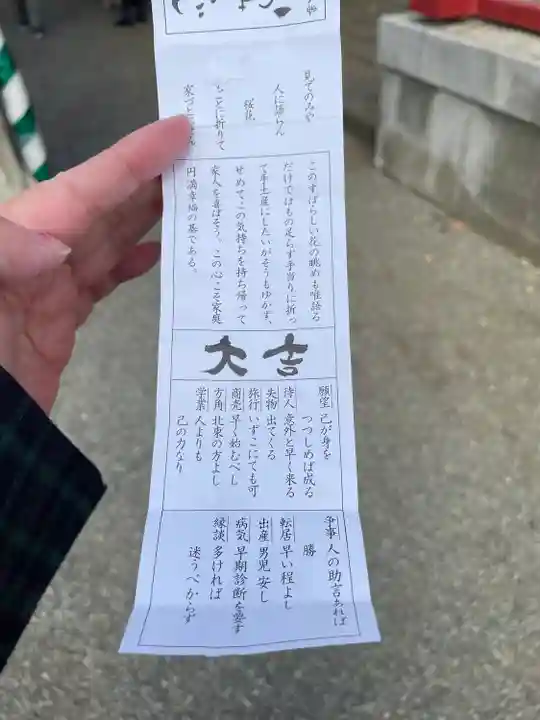 見てのみや
人に語らん
桜花
手ごとに折りて
家づとにせん
このすばらしい花の眺めも唯語る
だけではもの足らず手当りに折っ
て手土産にしたいがそうもゆかず、
せめて、この気持ちを持ち帰って
家人を喜ばそう。この心こそ家庭
円満幸福の基である。
大吉
願望 己が身を
つつしめば成る
待人 意外と早く来る
失物 出てくる
旅行 いずこにても可
商売 早く始むべし
方角 北東の方よし
学業 人よりも
己の力なり
争事 人の助言あれば
勝
転居 早い程よし
出産 男児 安し
病気 早期診断を要す
縁談 多ければ
迷うべからず